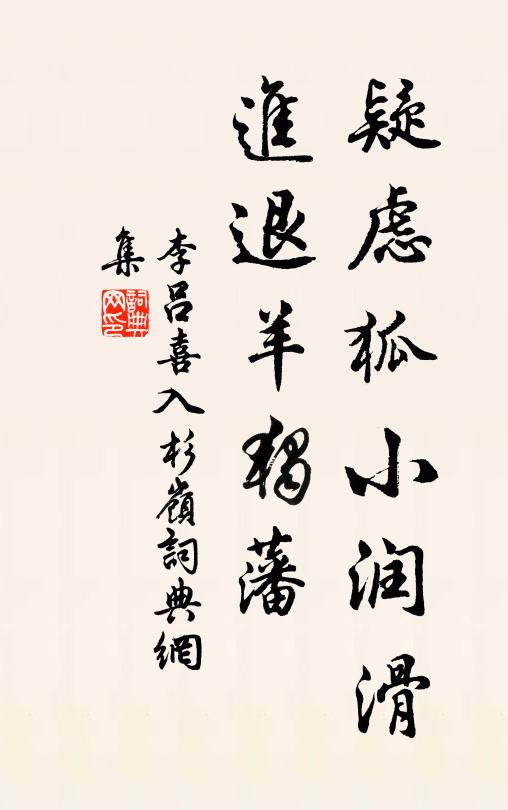 疑慮狐小潤滑
進退羊觸藩
李呂喜入杉嶺詞典網
集
詞典网印